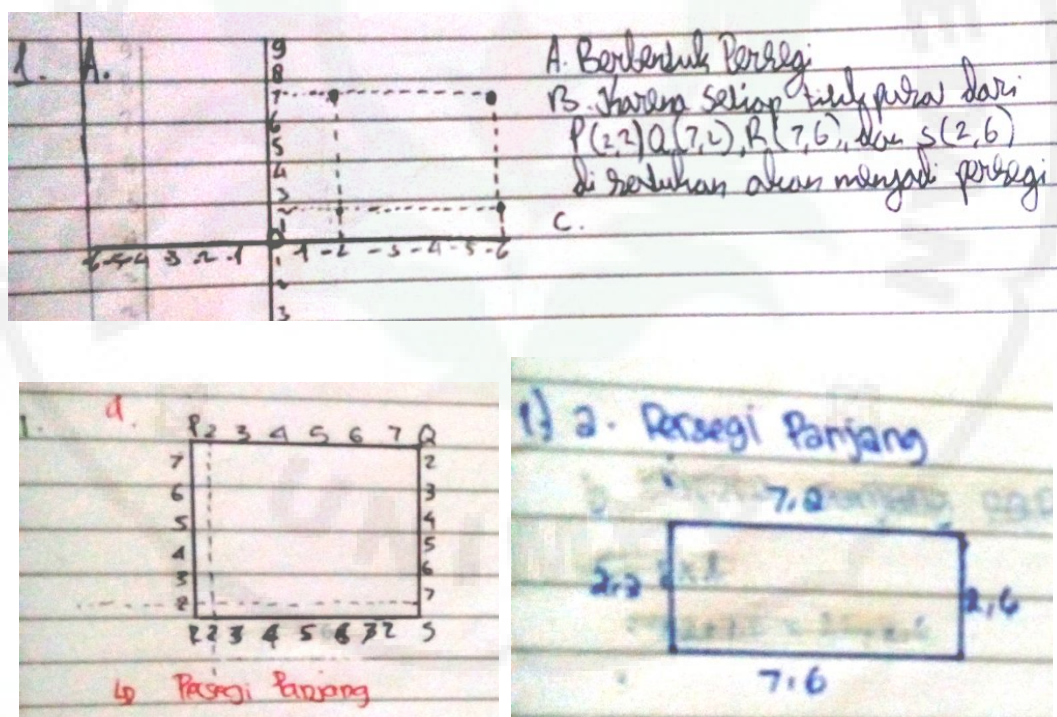 1. A.
9
8
7
6
5
4
3
2
1 2 3 4 5 6
3
A. Berbentuk Persegi
B. Karena setiap titik pusat dari
P(2,2) Q(7,2), R(7,6), dan S(2,6)
di satukan akan menjadi persegi
C.
1. a.
P 2 3 4 5 6 7 Q
7 2
6 3
5 4
4 5
3 6
2 7
2 3 4 5 6 7 S
Persegi Panjang
1) a. Persegi Panjang
7,2
2,2
2,6
7,6